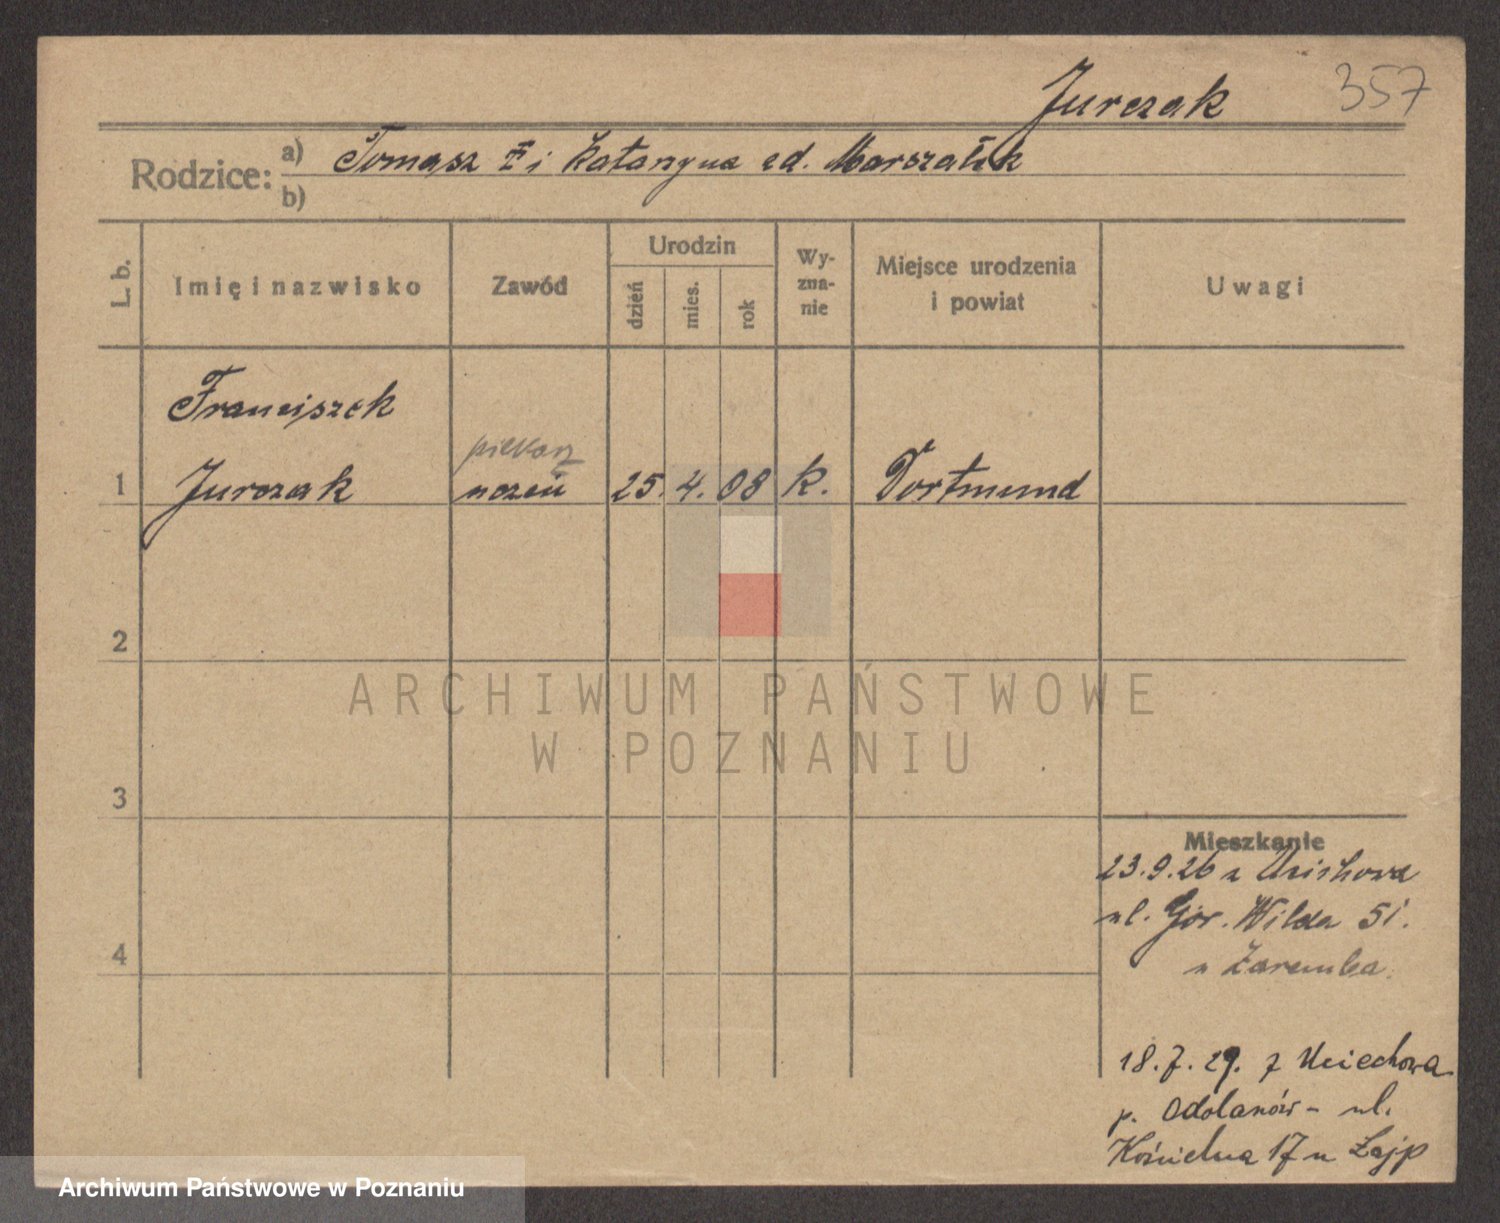 Jurczak
357
Rodzice: a) Tomasz i Katarzyna zd. Marszałek
b)
L. b.
Imię i nazwisko
Zawód
Urodzin
dzień
mies.
rok
Wy-
zna-
nie
Miejsce urodzenia
i powiat
Uwagi
Franciszek
piekarz
1 Jurczak uczeń 25. 4. 08 k. Dortmund
2
ARCHIWUM PAŃSTWOWE
W POZNANIU
3
Mieszkanie
23.9.26 z
ul. Gór. Wilda 51.
u Zaremba.
4
18.7.29. z Uciechowa
p. Odolanów - ul.
Kościelna 17 u
Archiwum Państwowe w Poznaniu